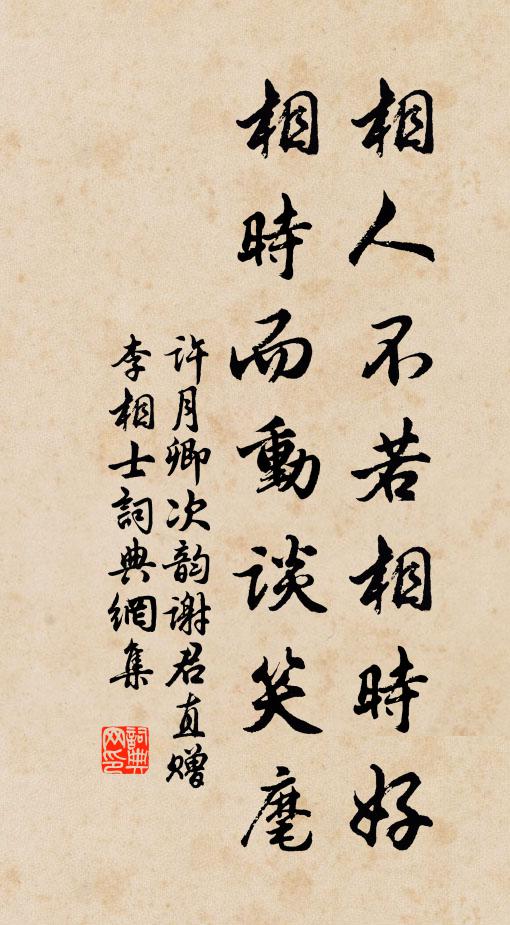 相人不若相時好
相時而動談笑麾
许月卿次韵謝君直赠
李相士詞典網集
詞典网印